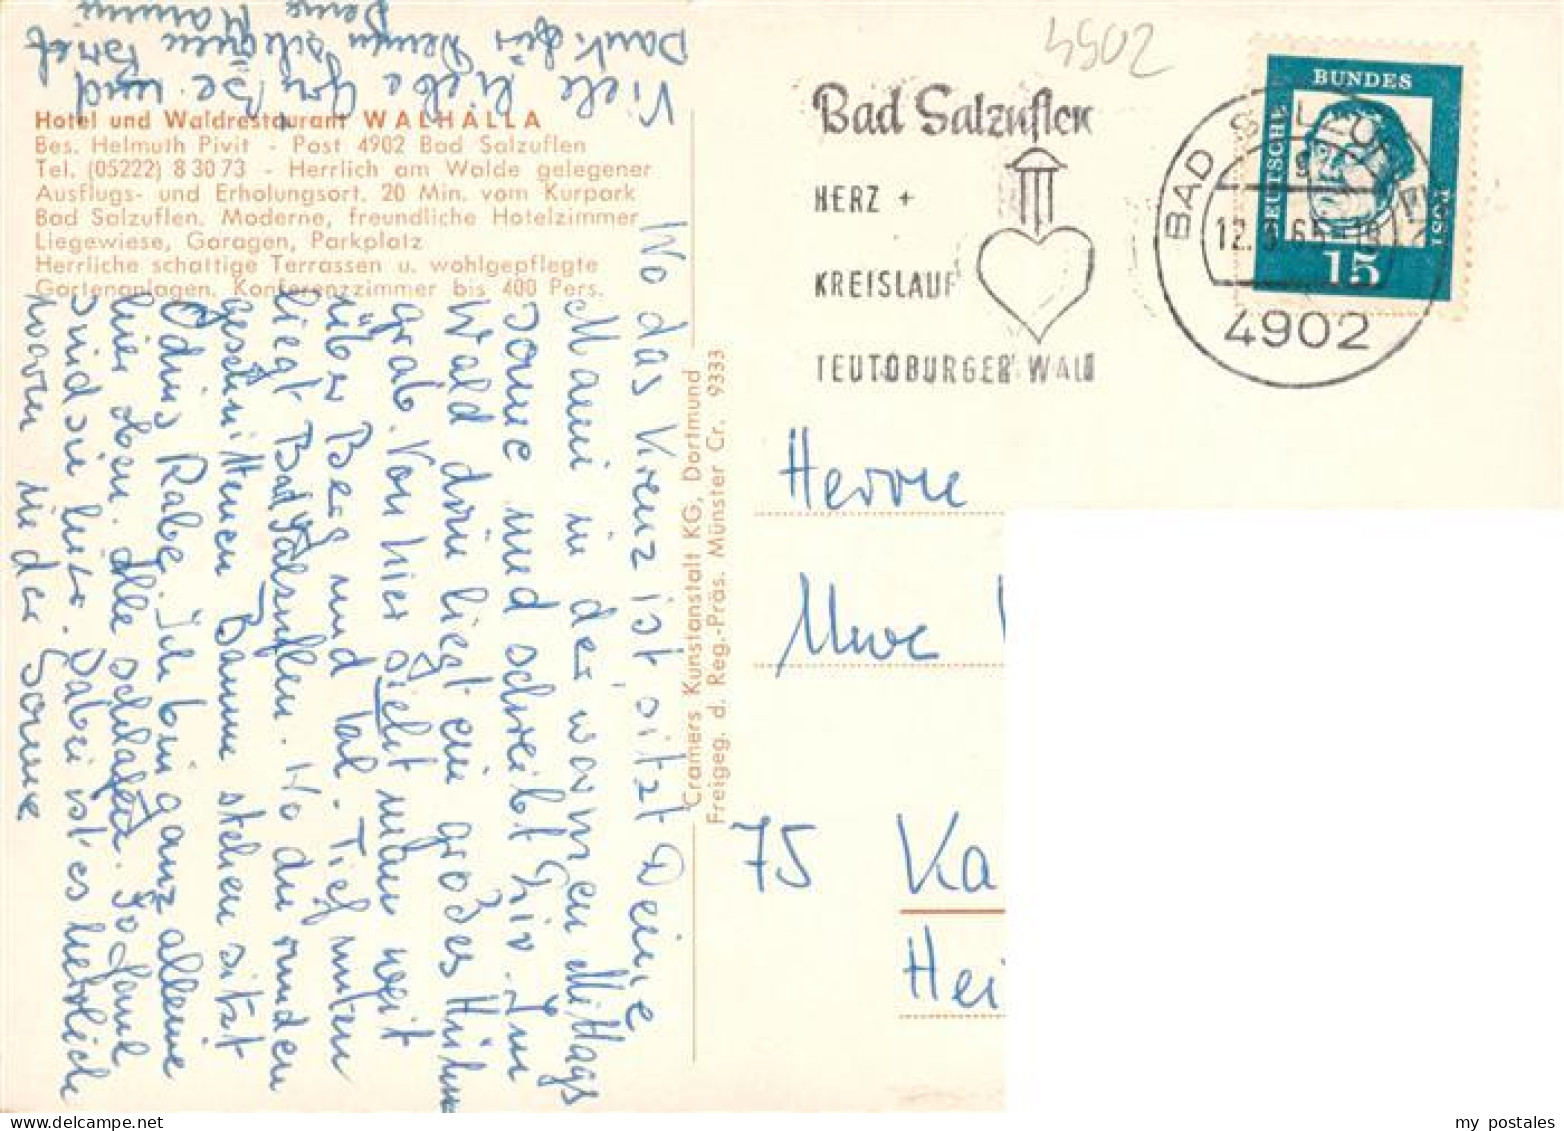 Hotel und Waldrestaurant WALHALLA
Bes. Helmuth Pivit - Post 4902 Bad Salzuflen
Tel. (05222) 8 30 73 - Herrlich am Walde gelegener
Ausflugs- und Erholungsort. 20 Min. vom Kurpark
Bad Salzuflen. Moderne, freundliche Hotelzimmer
Liegewiese, Garagen, Parkplatz
Herrliche schattige Terrassen u. wohlgepflegte
Gartenanlagen. Konferenzzimmer bis 400 Pers.
Wo das Kreuz ist, sitzt Deine
Mami in der warmen Mittags
sonne und schreibt Dir. Im
Wald drin liegt ein großes Hünen
grab. Von hier sieht man weit
über Berg und Tal. Tief unten
liegt Bad Salzuflen. Wo die runden
geschnittenen Bäume stehen sitzt
Odins Rabe. Ich bin ganz allene
hier oben. Alle schlafen. So faul
sind sie hier. Dabei ist es herrlich
warm in der Sonne
Viele liebe Grüße und
Dank für Deinen schönen Brief
Deine Mammi
Cramers Kunstanstalt KG, Dortmund
Freigeg. d. Reg.-Präs. Münster Cr. 9333
4902
Bad Salzuflen
HERZ +
KREISLAUF
TEUTOBURGER WALD
BAD SALZUFLEN
4902
DEUTSCHE BUNDES
15
Herrn
Uwe
75 Ka
Hei
my postales